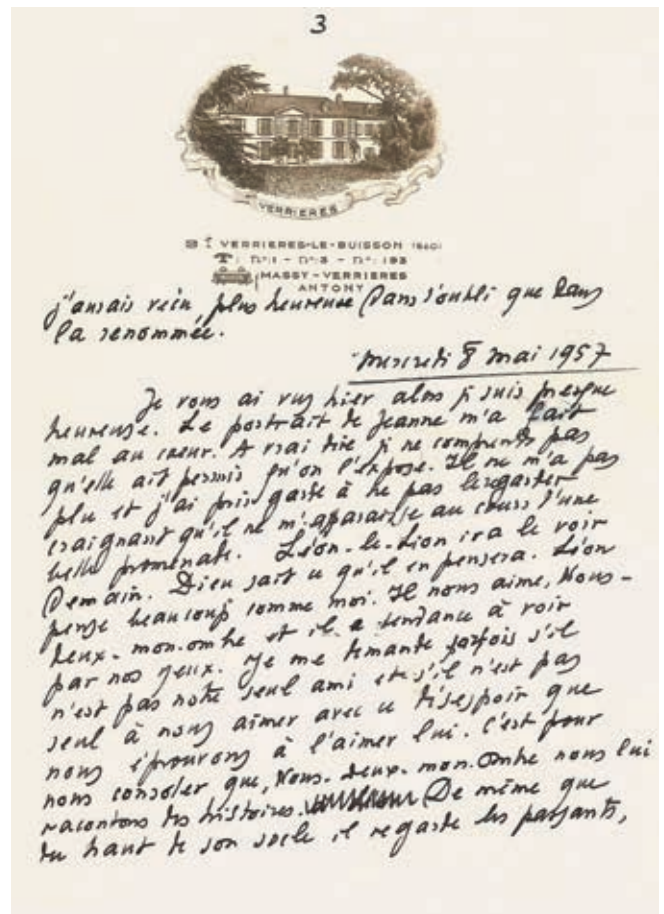 3
VERRIERES
VERRIERES-LE-BUISSON
N° 1 - N° 3 - N° 193
MASSY-VERRIERES
ANTONY
j'aurais vécu, plus heureuse dans l'oubli que dans
la renommée.
Mercredi 8 mai 1957
Je vous ai vus hier alors je suis presque
heureuse. Le portrait de Jeanne m'a fait
mal au cœur. A vrai dire je ne comprends pas
qu'elle ait permis qu'on l'expose. Il ne m'a pas
plu et j'ai pris garde à ne pas le regarder
craignant qu'il ne m'apparaisse au cours d'une
belle promenade. Léon-le-Lion ira le voir
demain. Dieu sait ce qu'il en pensera. Léon
pense beaucoup comme moi. Il nous aime, Nous-
deux-mon-ombre et il a tendance à voir
par nos yeux. Je me demande parfois s'il
n'est pas notre seul ami et s'il n'est pas
seul à nous aimer avec ce désespoir que
nous éprouvons à l'aimer lui. C'est pour
nous consoler que, Nous-deux-mon-Ombre nous lui
racontons des histoires. De même que
du haut de son socle il regarde les passants,